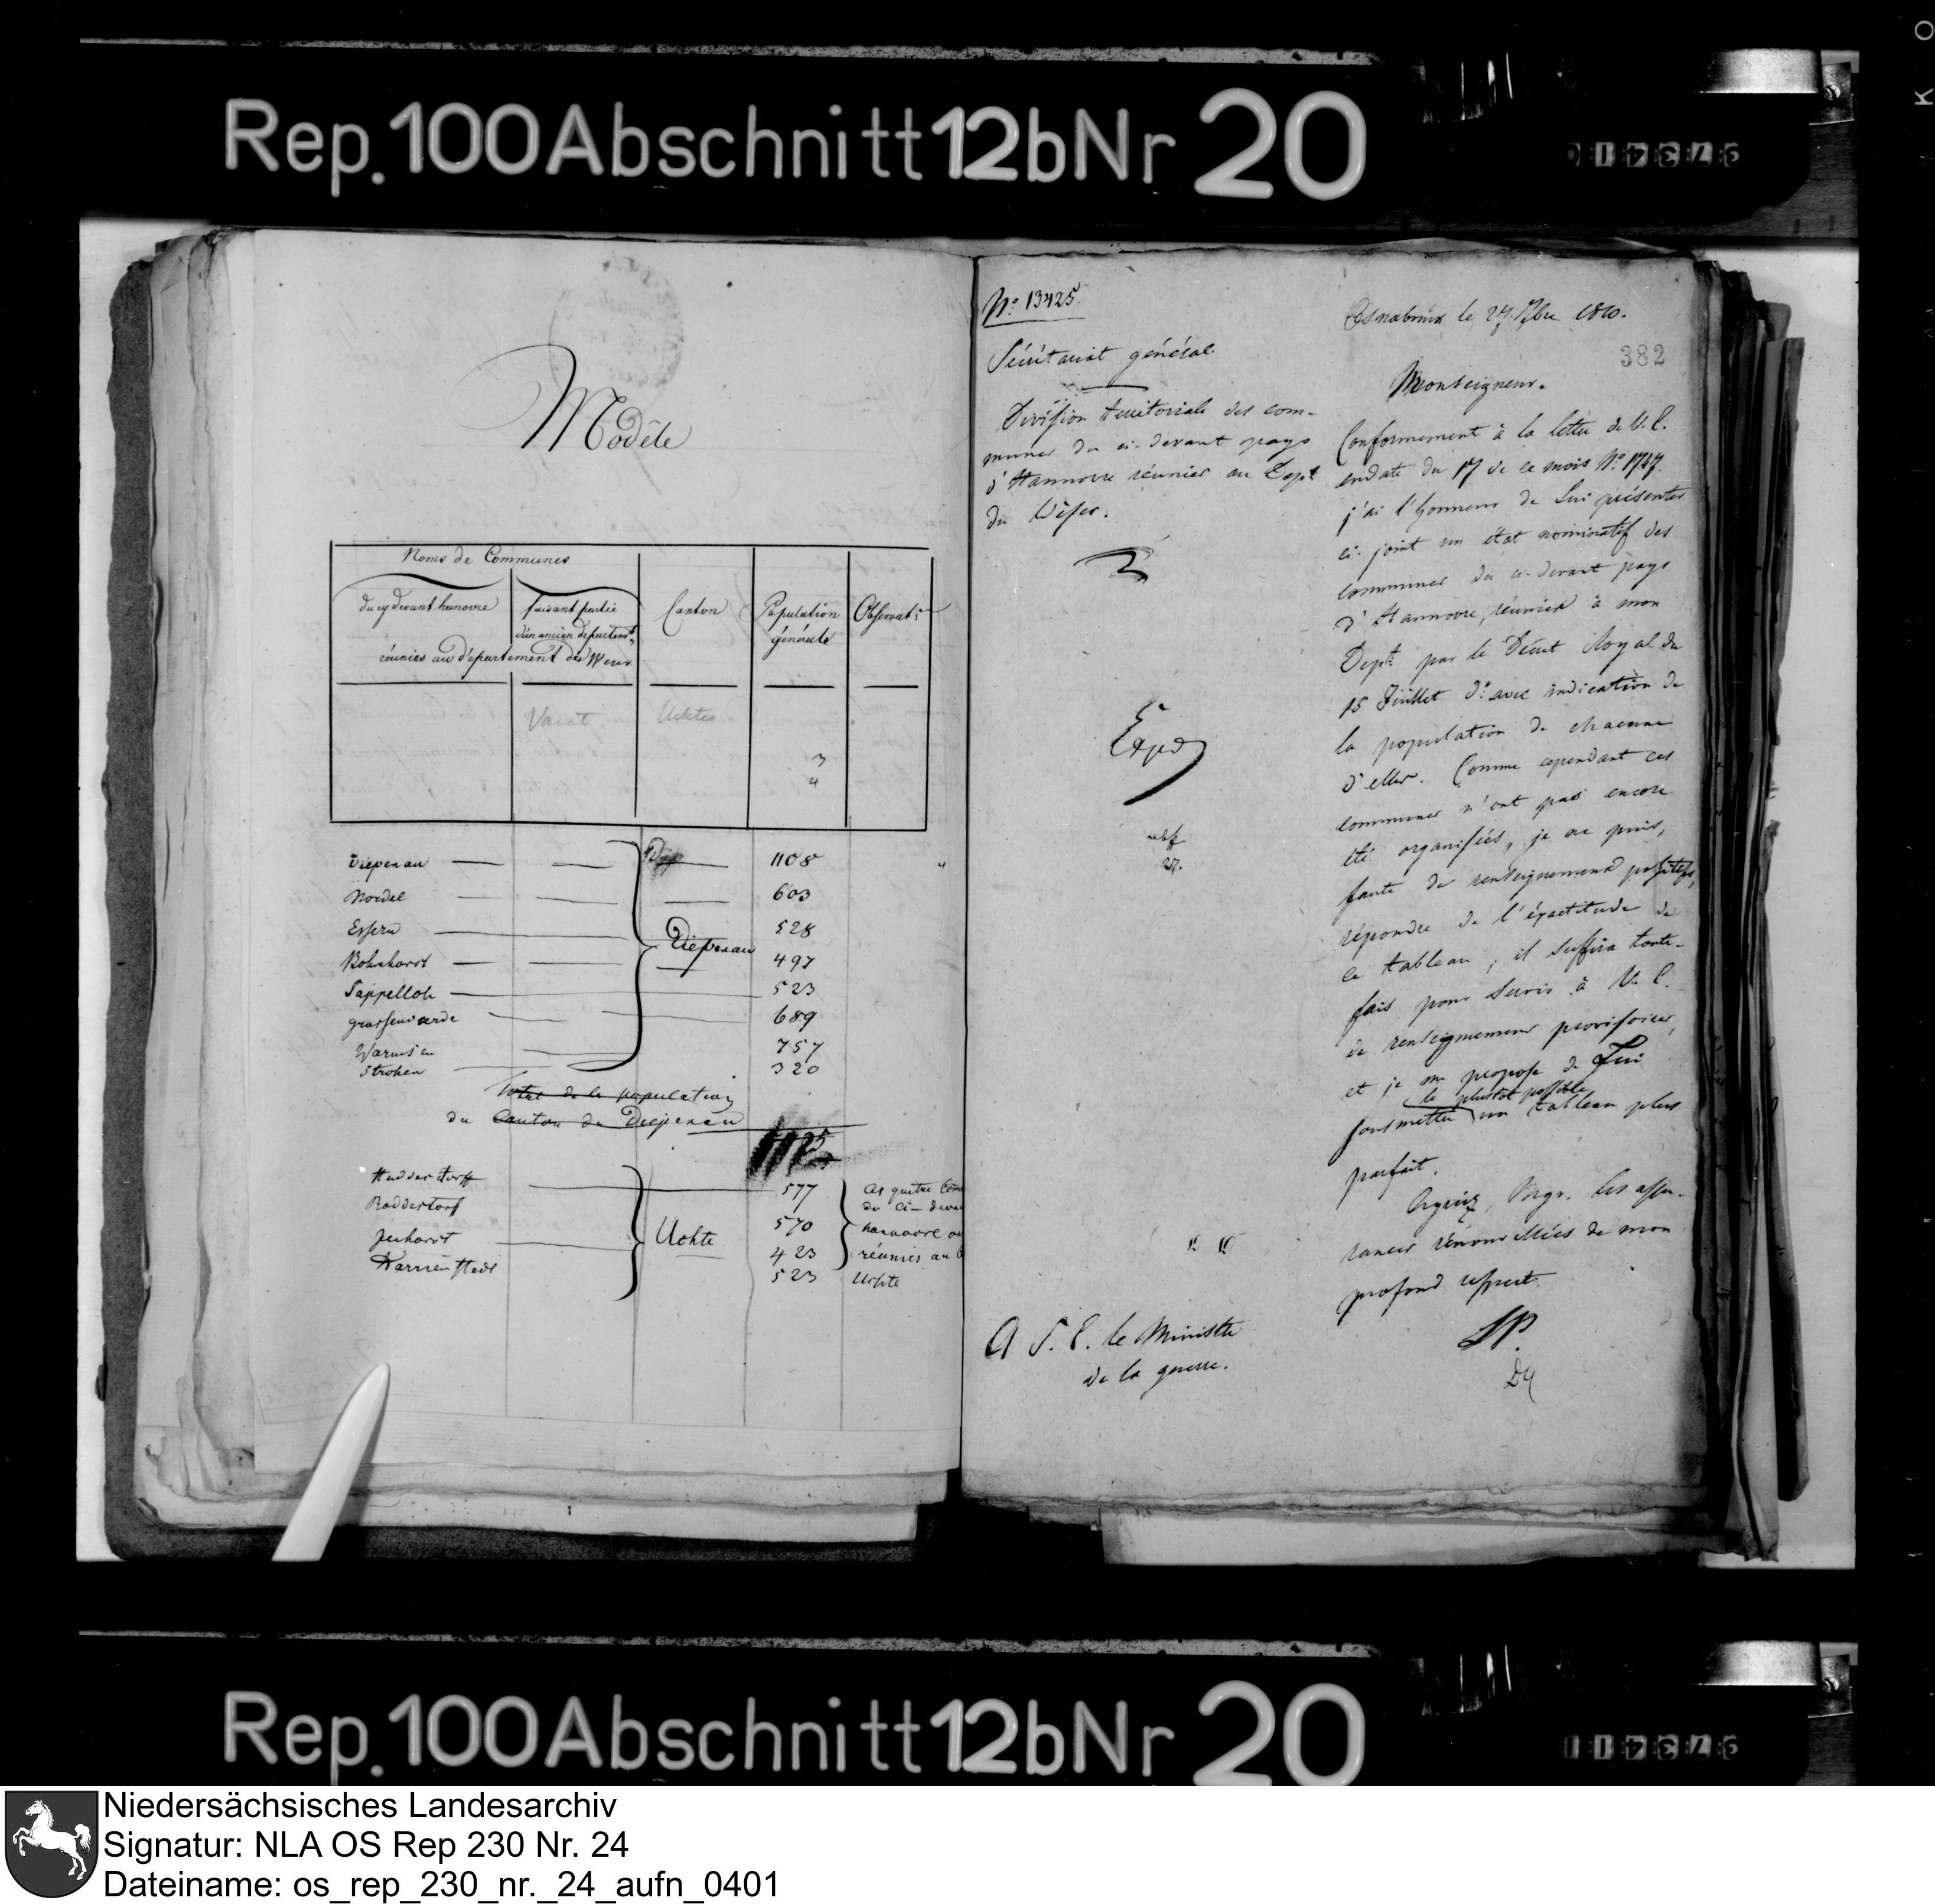 Rep. 100 Abschnitt 12b Nr 20
Modèle
Noms de Communes
du cy devant hanovre
faisant partie
d'un ancien départemt
réunies au département du Weser
Canton
Population
générale
Observat:
Vacat
Uchte
3
4
Diepenau 1108
Nordel 603
Essern 528
Diepenau
Bohnhorst 497
Tappelloh 523
689
Warmsen 757
Strohen 320
Total de la population
du Canton de Diepenau
Huddestorff 577
Raddestorf 570
Jenhorst 423
Uchte
Harrienstedt 523
ces quatre Com
du ci-devan
hannovre on
réunies au C
Uchte
No. 13425.
Sécrétariat général
Division territoriale des com-
munes du ci-devant pays
d'Hannovre réunies au Dept
du Wéser.
Exped
27.
A S. E. le Ministre
de la guerre.
Osnabrück le 27. 7bre 1810.
382
Monseigneur.
Conformement à la lettre de V. E.
endate du 17 de ce mois No. 1747.
j'ai l'honneur de Lui présenter
ci-joint un état nominatif des
communes du ci-devant pays
d'Hannovre, réunies à mon
Dept par le Décret Royal du
15 Juillet d: avec indication de
la population de chacune
d'elles. Comme cependant ces
communes n'ont pas encore
été organisées, je ne puis,
faute de renseignemens positifs,
répondre de l'éxactitude de
ce tableau; il suffira toute-
fois pour servir à V. E.
de renseignemens provisoires,
et je me propose de Lui
le plustôt possible
soumettre un tableau plus
parfait.
Agréez, Msgr. les assu-
rances rénouvellées de mon
profond respect.
Rep. 100 Abschnitt 12b Nr 20
Niedersächsisches Landesarchiv
Signatur: NLA OS Rep 230 Nr. 24
Dateiname: os_rep_230_nr._24_aufn_0401